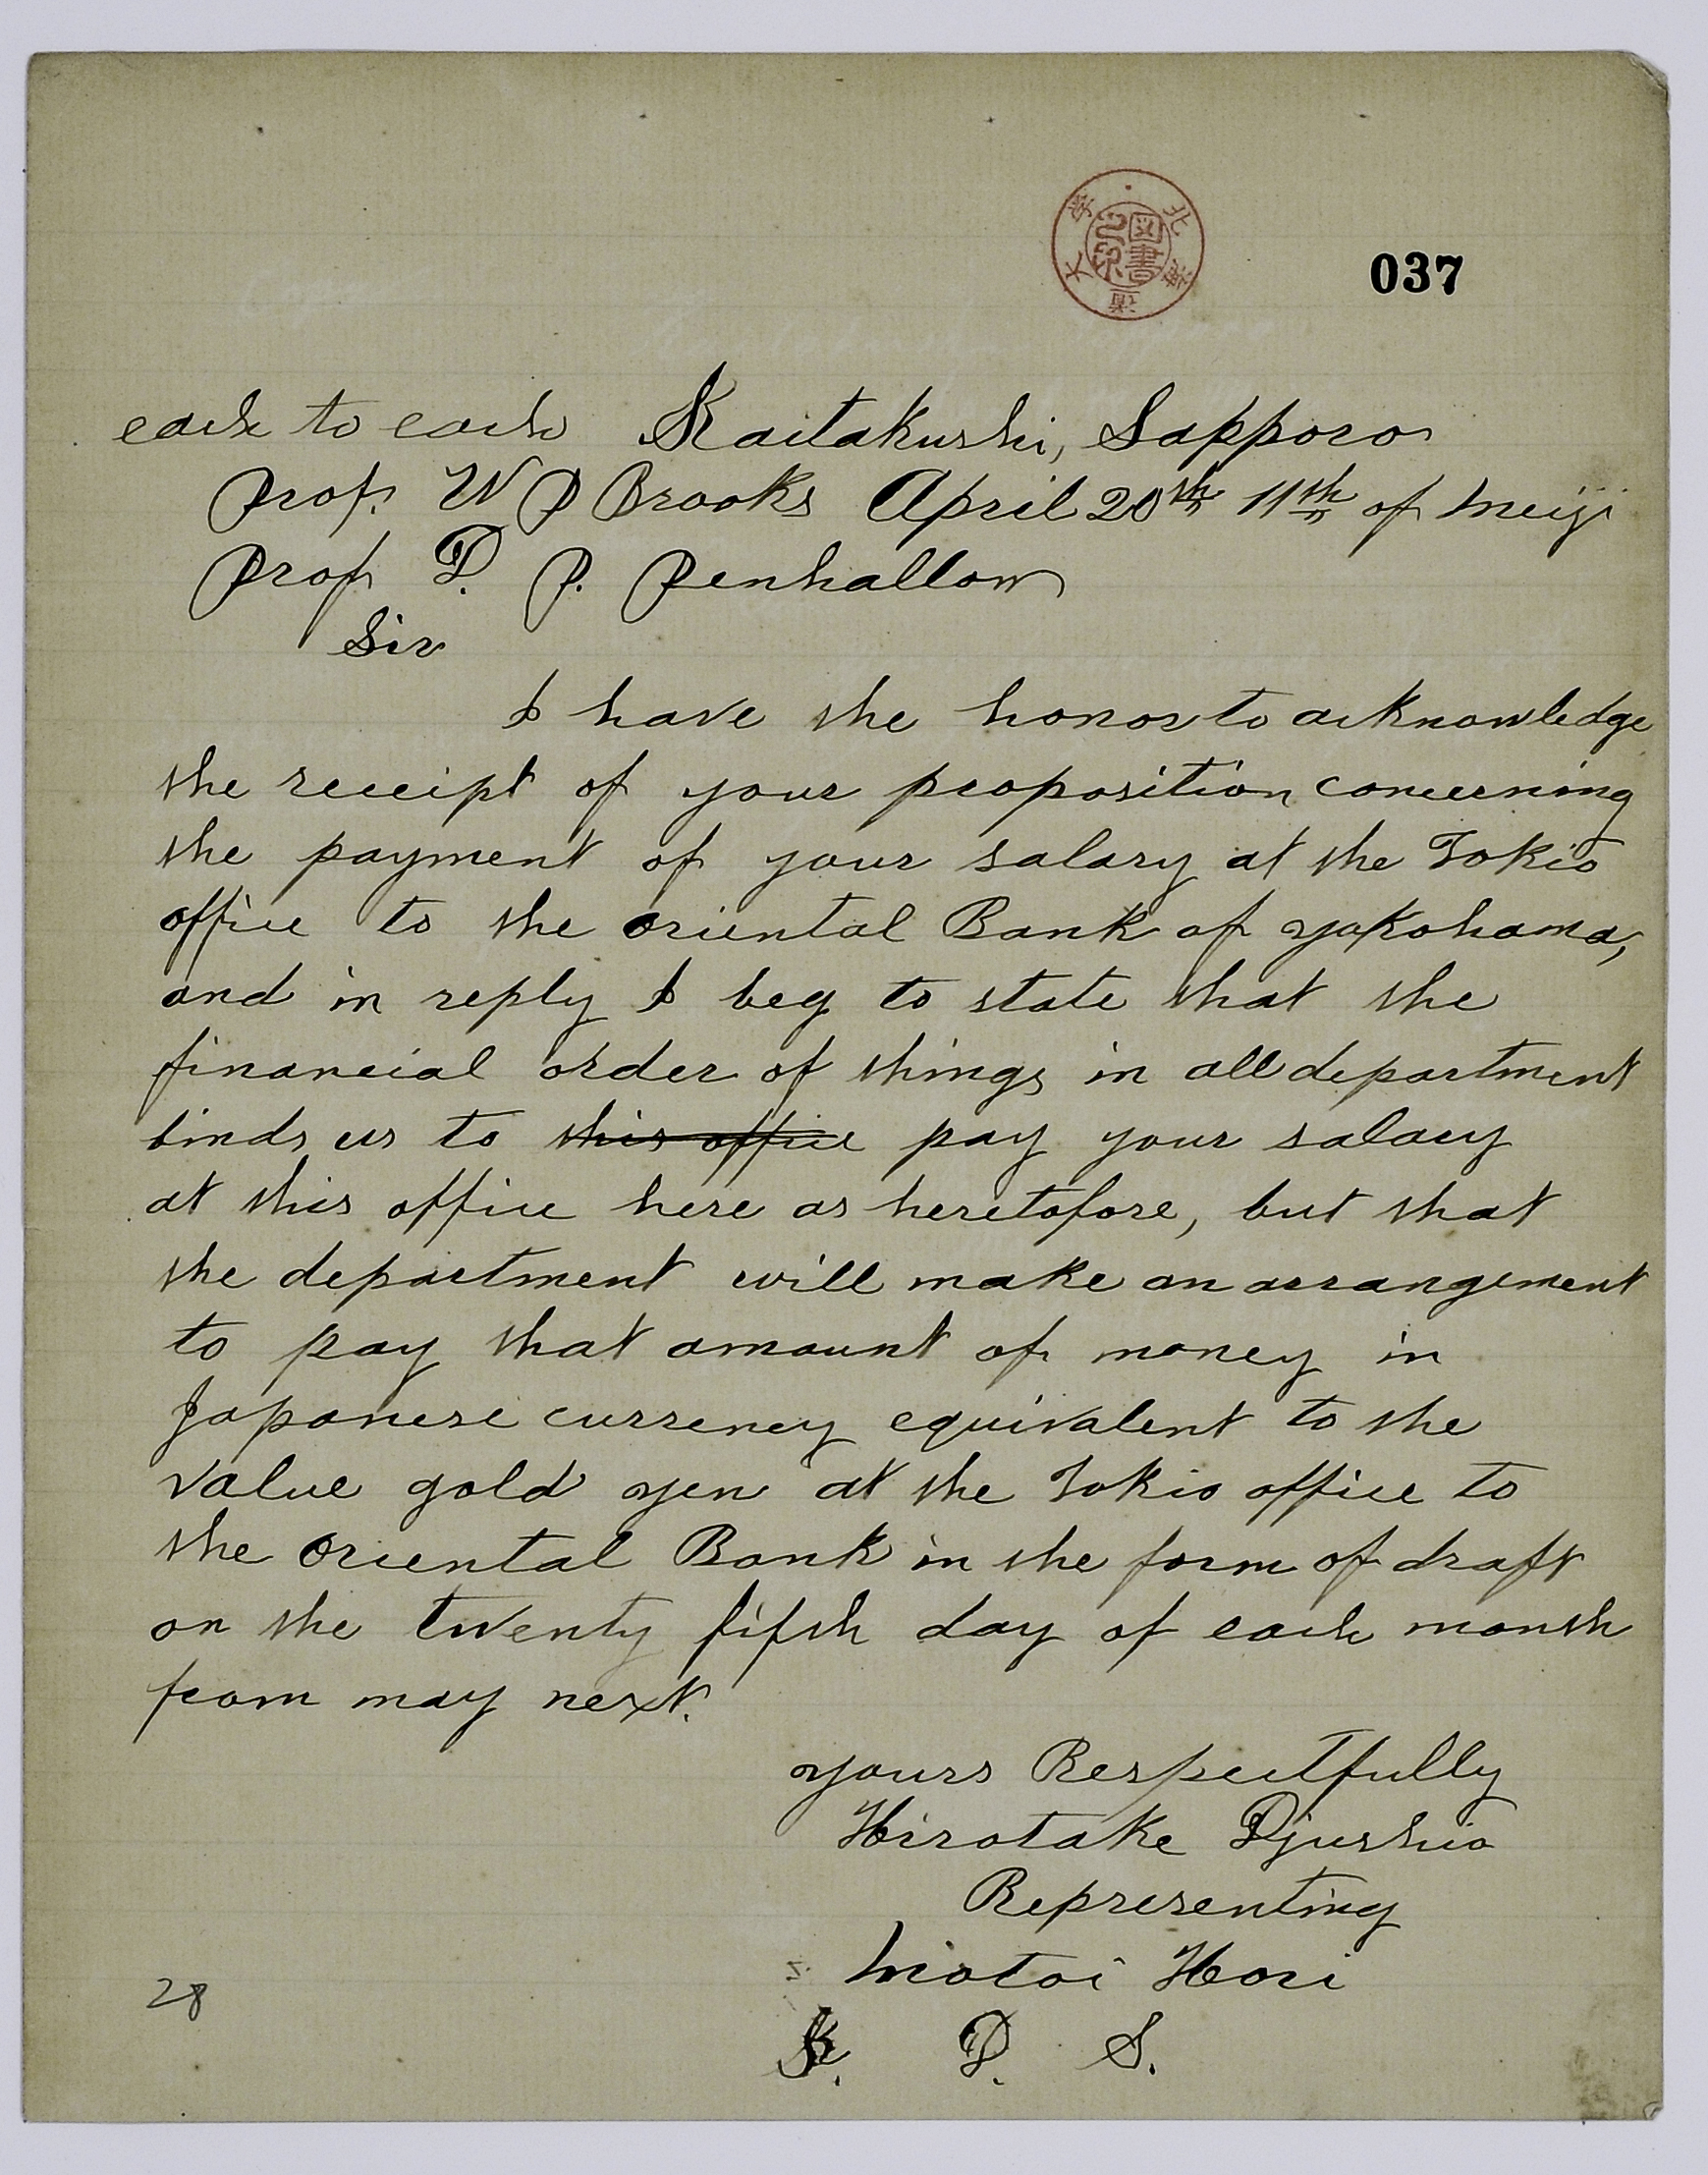 北海道大學
圖書之印
037
each to each Kaitakushi, Sapporo
Prof. W P Brooks April 20th 11th of Meiji
Prof D. P. Penhallow
Sir
I have the honor to acknowledge
the receipt of your proposition concerning
the payment of your salary at the Tokio
office to the Oriental Bank of Yokohama,
and in reply I beg to state that the
financial order of things in all department
binds us to this office pay your salary
at this office here as heretofore, but that
the department will make an arrangement
to pay that amount of money in
Japanese currency equivalent to the
value gold yen at the Tokio office to
the Oriental Bank in the form of draft
on the twenty fifth day of each month
from may next.
yours Respectfully
Hirotake Djushio
Representing
Motoi Hori
K. D. S.
28